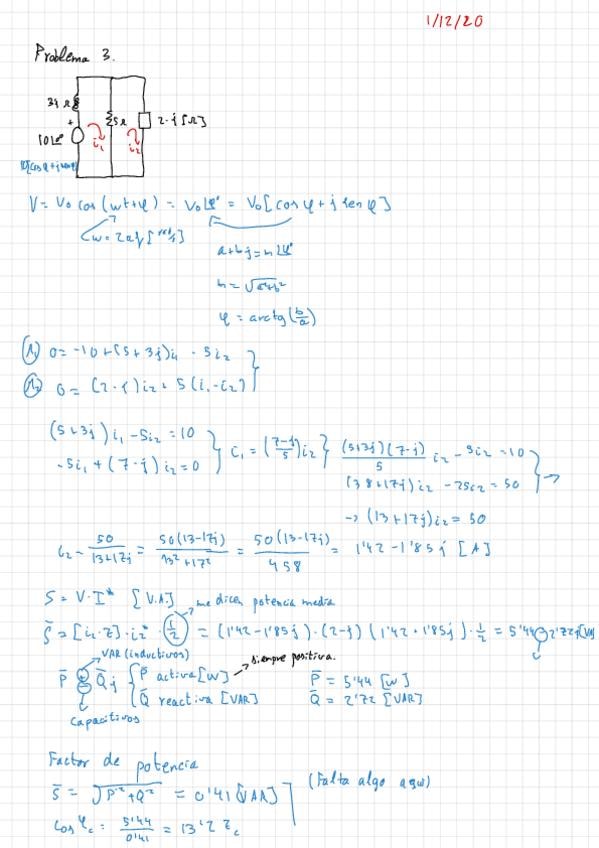 1/12/20
Problema 3.
3j Ω
5Ω
2-j[Ω]
+
10∠0°
i1
i2
V = V0 cos(wt+φ) = V0∠φ° = V0[cos φ + j sen φ]
w = 2πf [rad/s]
a+bj = h∠φ°
h = √a²+b²
φ = arctg(b/a)
(1) 0 = -10+(5+3j)i1 - 5i2
(2) 0 = (2-j)i2 + 5(i1-i2)
(5+3j)i1 - 5i2 = 10
-5i1 + (7-j)i2 = 0
i1 = (7-j/5)i2
(5+3j)(7-j)/5 i2 - 5i2 = 10
(38+17j)i2 - 25i2 = 50
→ (13+17j)i2 = 50
i2 = 50/13+17j = 50(13-17j)/13²+17² = 50(13-17j)/458 = 1'42 - 1'85j [A]
S = V·I* [V.A.]
me dicen potencia media
S̄ = [i2·Z]·i2*·(1/2) = (1'42-1'85j)·(2-j)(1'42+1'85j)·1/2 = 5'44 - 2'72j[VA]
VAR (inductivos)
siempre positiva.
P̄ ± Q̄j
P̄ activa [W]
Q̄ reactiva [VAR]
P̄ = 5'44 [W]
Q̄ = 2'72 [VAR]
capacitivos
Factor de potencia
S̄ = √P²+Q² = 0'41 [VAR]
(Falta algo aquí)
cos φc = 5'44/0'41 = 13'2